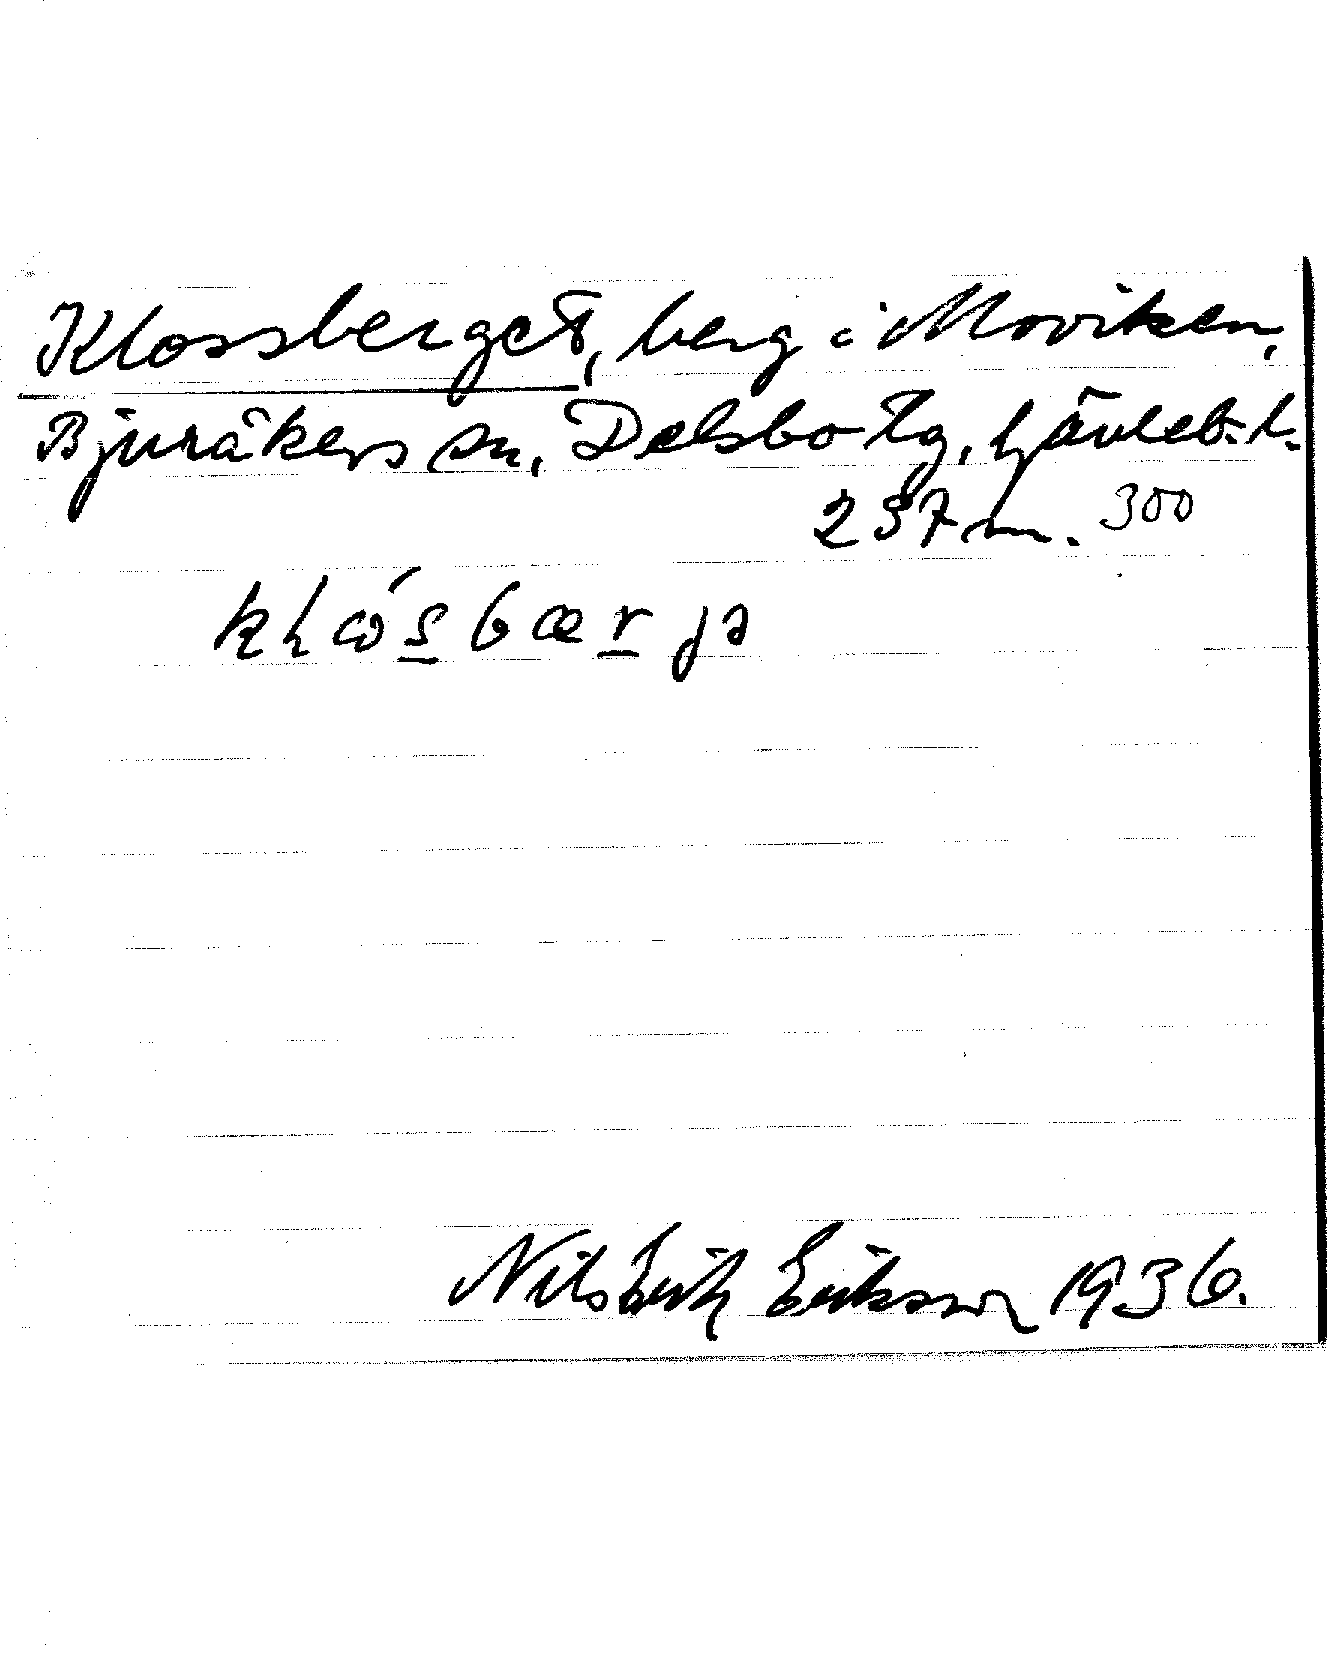 Klossberget, berg i Moviken,
Bjuråkers sn, Delsbo tg, Gävleb. l.
237 m. 300
klɷ́s̲bær̲jə
Nils Erik Eriksson 1936.